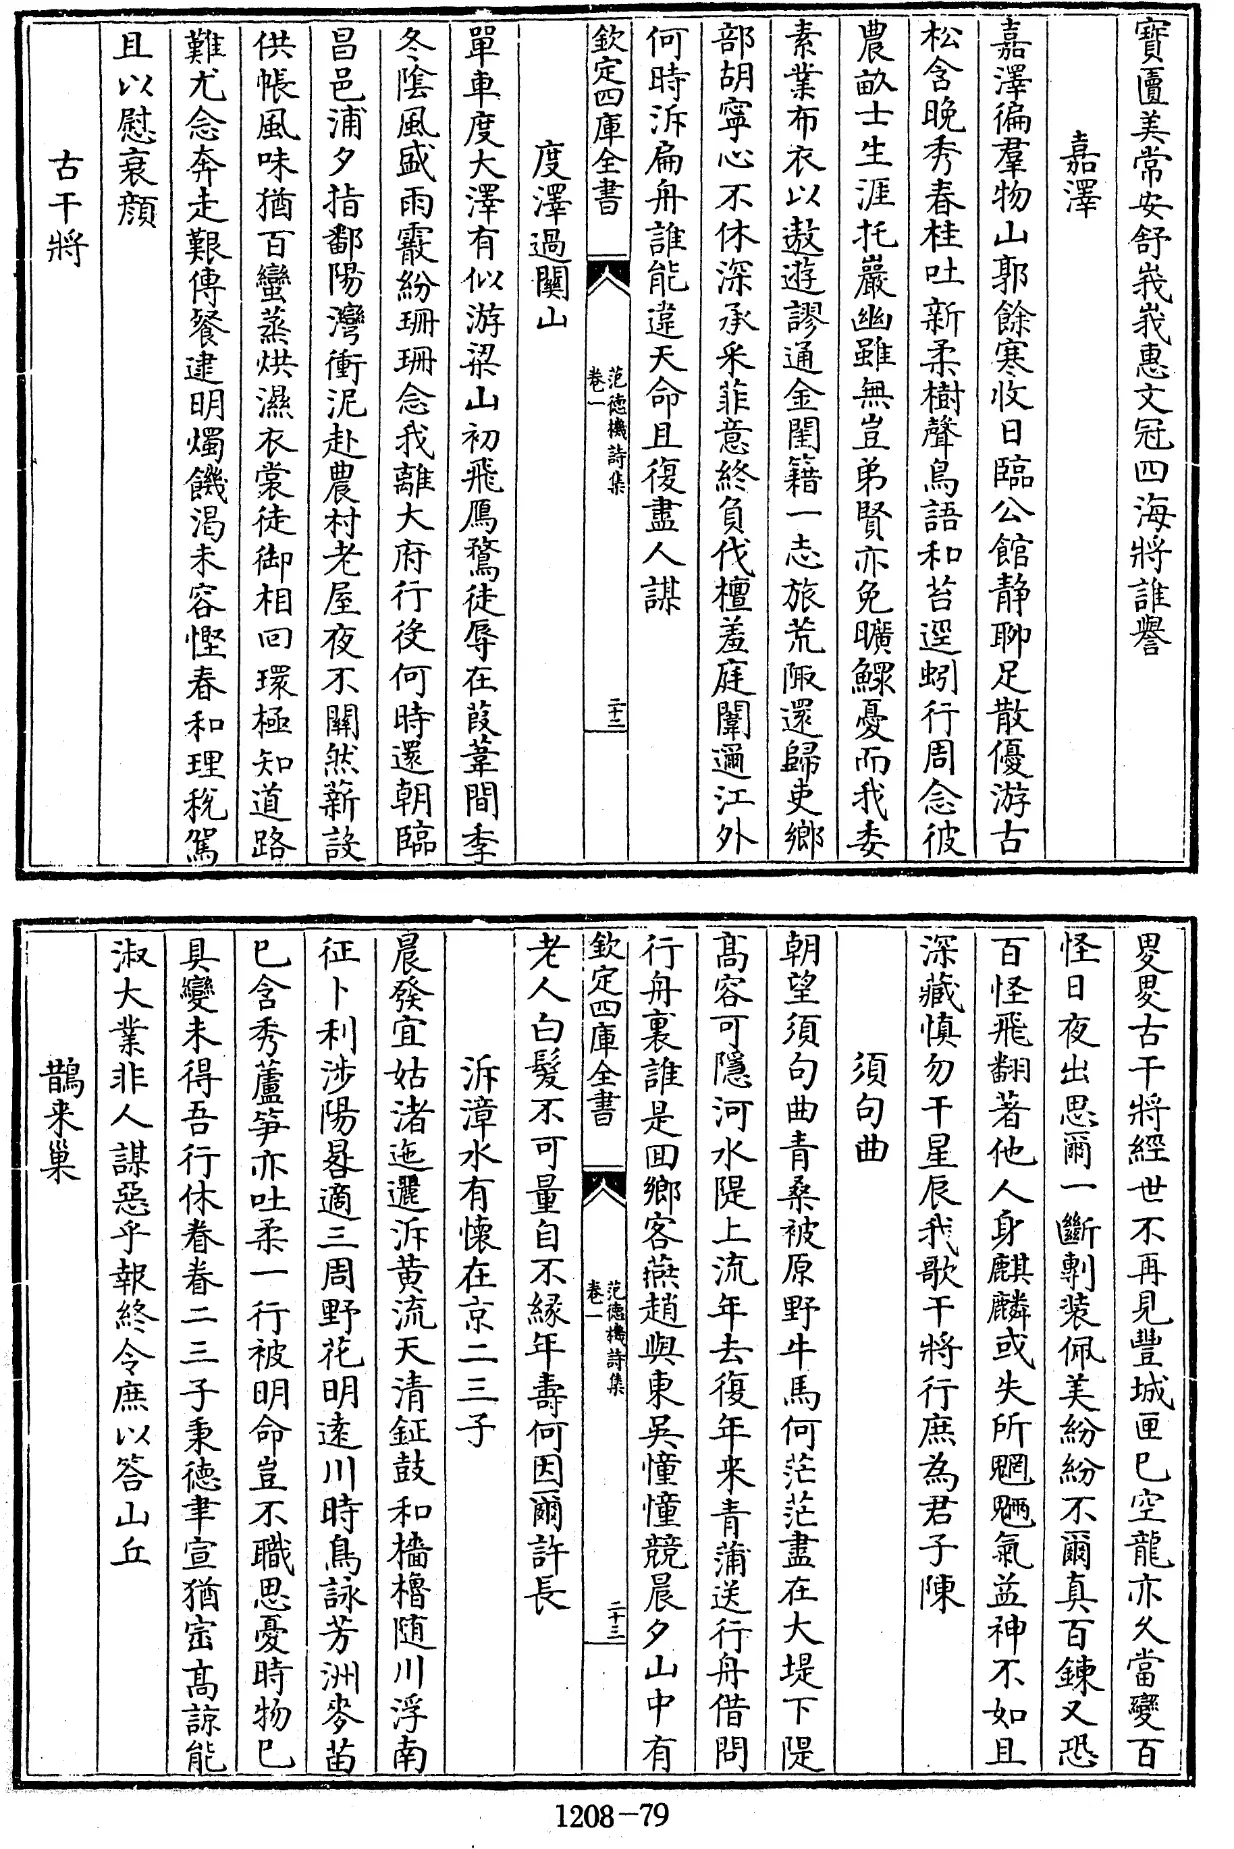 寳匵美常安舒峩峩惠文冠四海將誰譽
嘉澤
嘉澤徧羣物山郭餘寒收日臨公館静聊足散優游古
松含晚秀春桂吐新柔樹聲鳥語和苔逕蚓行周念彼
農畝士生涯托巖幽雖無豈弟賢亦免曠鰥憂而我委
素業布衣以遨遊謬通金閨籍一志旅荒陬還歸吏鄉
部胡寧心不休深承采菲意終負伐檀羞庭闈邇江外
何時泝扁舟誰能違天命且復盡人謀
欽定四庫全書
范德機詩集
卷一
二十二
度澤過關山
單車度大澤有似游梁山初飛鴈鶩徒辱在葭葦間季
冬隂風盛雨霰紛珊珊念我離大府行役何時還朝臨
昌邑浦夕指鄱陽灣衝泥赴農村老屋夜不關然薪設
供帳風味猶百蠻蒸烘濕衣裳徒御相回環極知道路
難尤念奔走艱傳餐逮明燭饑渴未容慳春和理税駕
且以慰衰顔
古干將
畟畟古干將經世不再見豐城匣已空龍亦久當變百
怪日夜出思爾一斷剸装佩美紛紛不爾真百鍊又恐
百怪飛翻著他人身麒麟或失所魍魎氣益神不如且
深藏慎勿干星辰我歌干將行庶為君子陳
須句曲
朝望須句曲青桑被原野牛馬何茫茫盡在大堤下隄
髙容可隱河水隄上流年去復年来青蒲送行舟借問
行舟裏誰是回鄉客燕趙與東吳憧憧競晨夕山中有
欽定四庫全書
范德機詩集
卷一
二十三
老人白髮不可量自不緣年壽何因爾許長
泝漳水有懷在京二三子
晨發宜姑渚迤邐泝黄流天清鉦鼓和檣櫓随川浮南
征卜利涉陽晷適三周野花明遠川時鳥詠芳洲麥苗
已含秀蘆笋亦吐柔一行被明命豈不職思憂時物已
具變未得吾行休眷眷二三子秉德聿宣猶宻髙諒能
淑大業非人謀惡乎報終令庶以答山丘
鵲来巢
1208－79